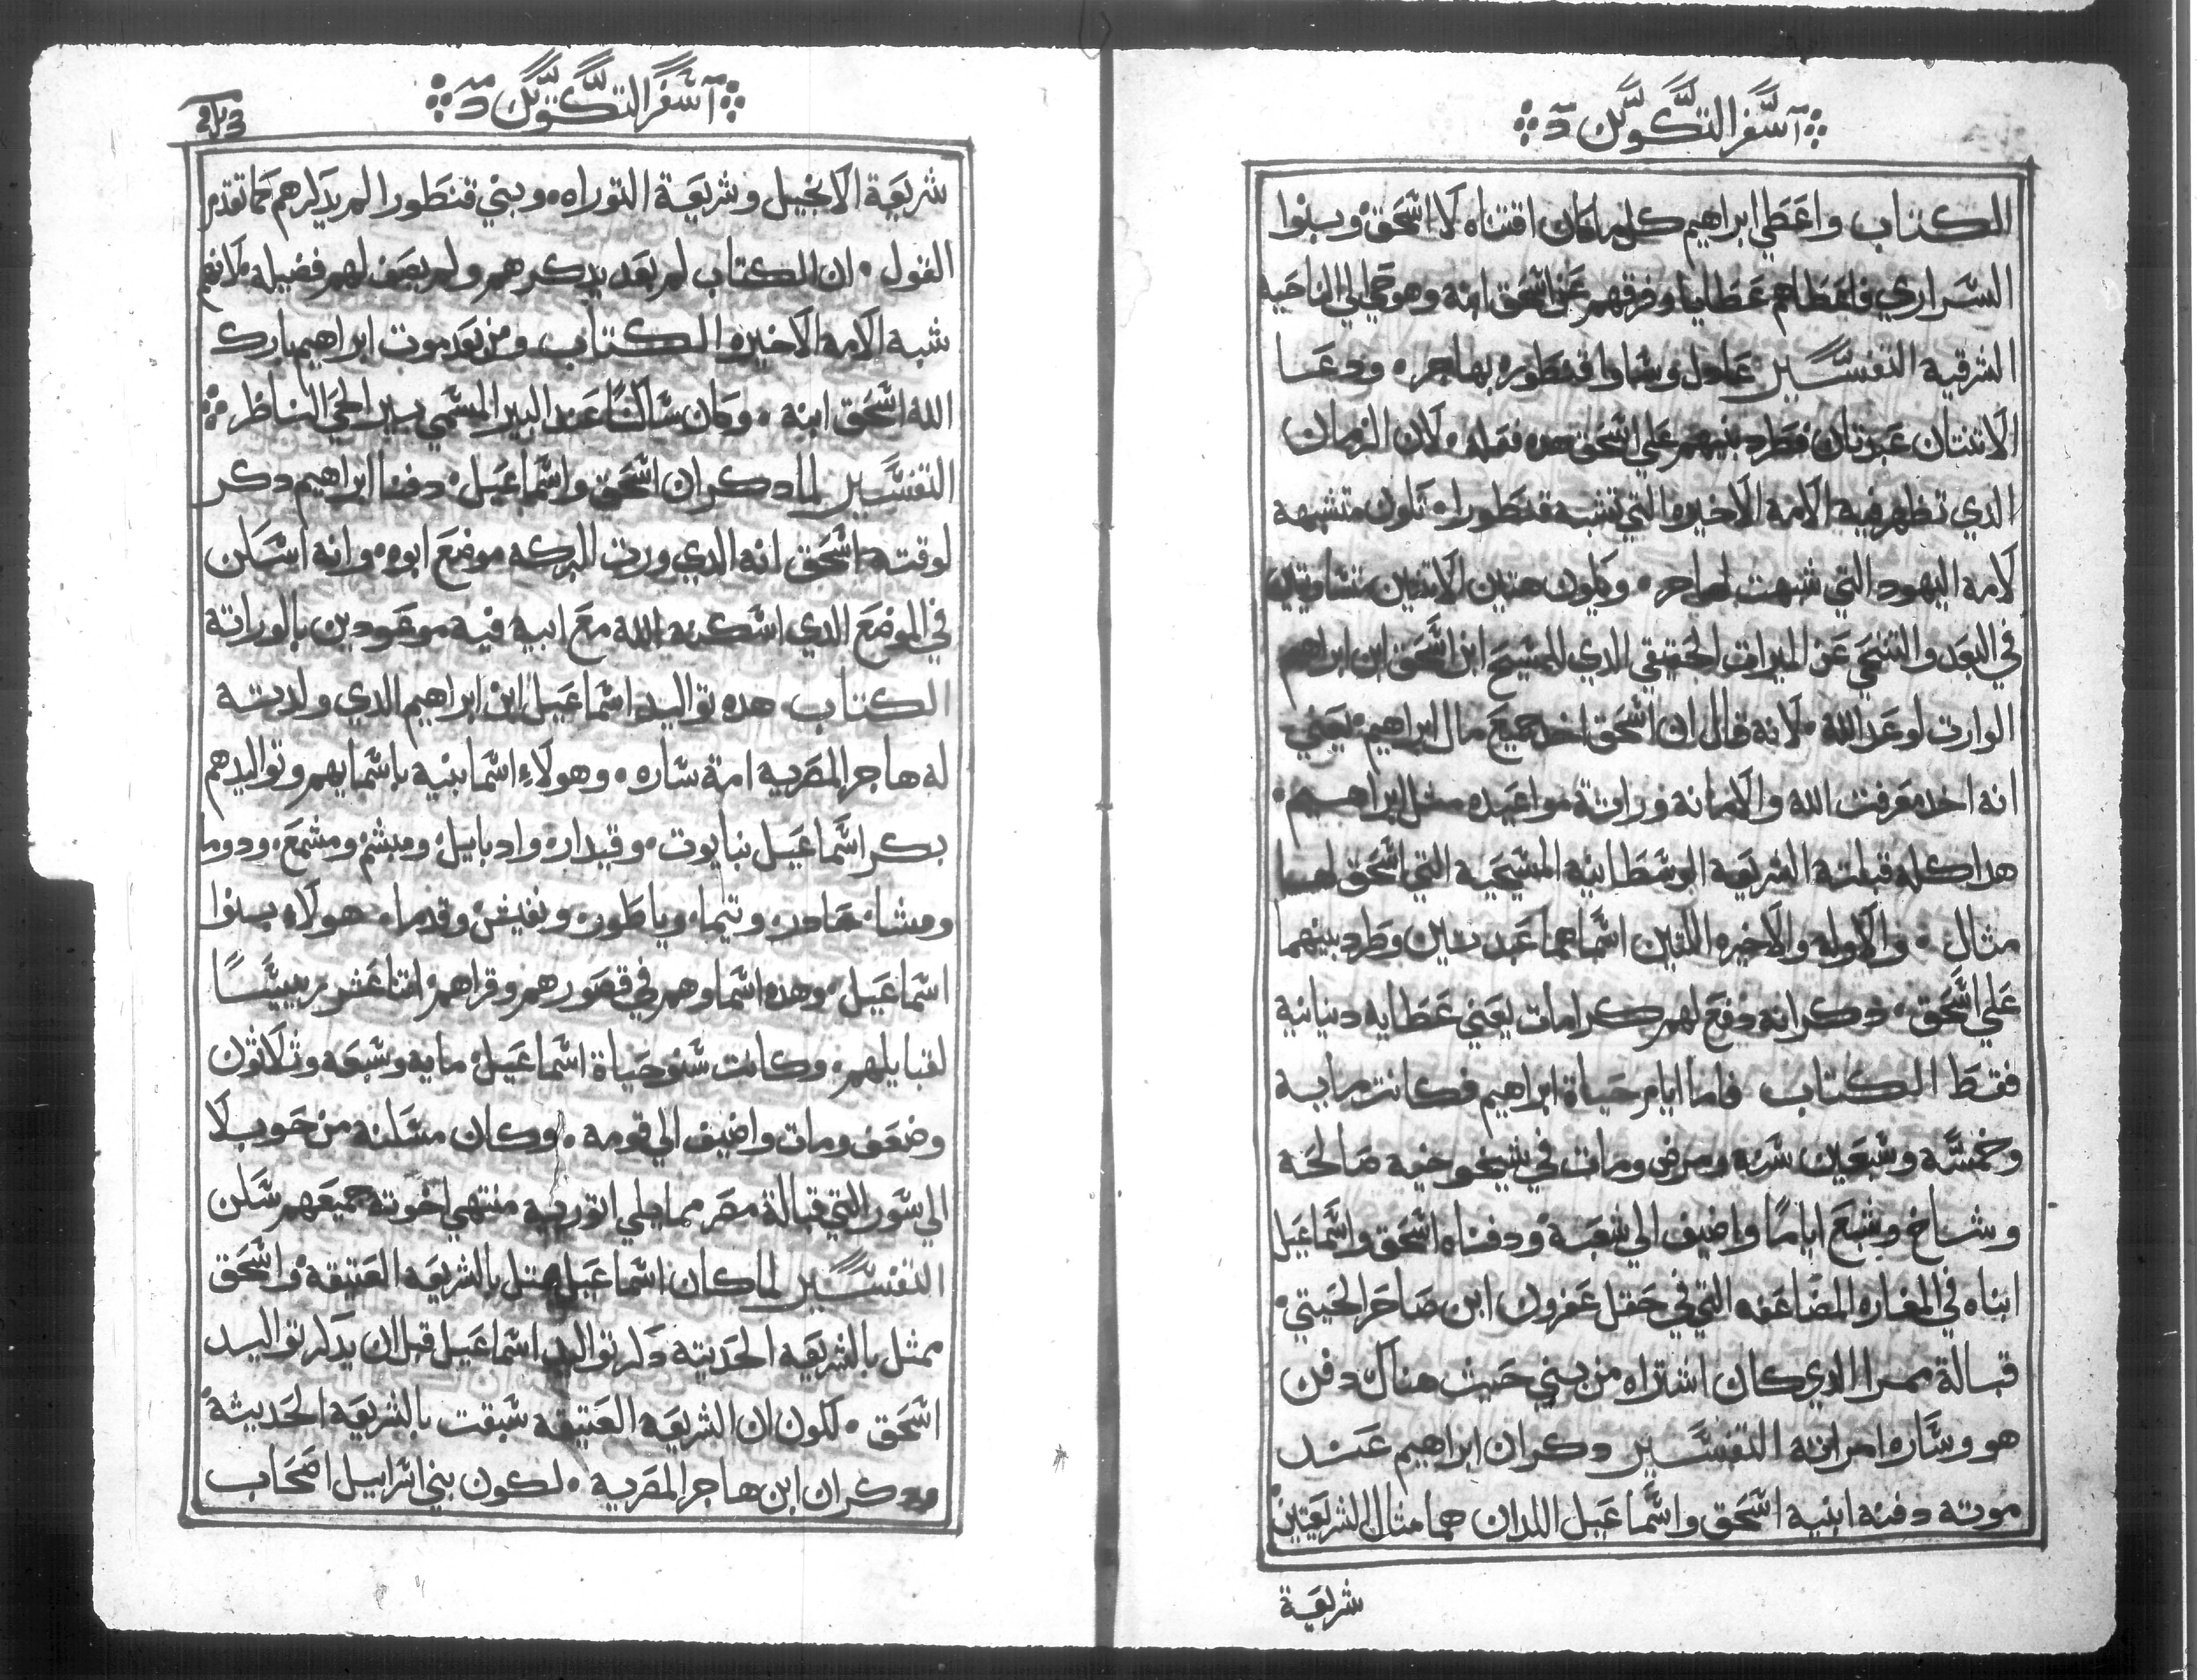 اسفر التكوين
الكتاب واعطي ابراهيم كل ما كان اقتناه لاسحق وبنوا
السراري فاعطاهم عطايا وفرقهم عن اسحق ابنه وهو حي الي الناحيه
الشرقية التفسير عادل وساوا قنطوره بهاجر ودعا
الاتنتان عبدتان فطرد بنيهم علي اسحق هده فعله لان الزمان
الدي تظهر فيه الامة الاخيره التي تشبه قنطورا تكون متشبهة
لامة اليهود التي شبهت لهاجر ويكون هتين الاتنين متساويتين
في البعد والتنحي عن الميرات الحقيقي الدي المسيح ابن اسحق ابن ابراهيم
الوارت لوعد الله لانه قال ان اسحق اخد جميع مال ابراهيم يعني
انه اخد معرفت الله والامانه ووراتة مواعيده مثل ابراهيم
هدا كله قبلته الشريعة الوسطانيه المسيحية التي اسحق لها
مثال والاوله والاخيره اللتين اسماهما عبدتين وطرد بينهما
علي اسحق دكر انه دفع لهم كرامات يعني عطايه دنيانية
فقط الكتاب فاما ايام حياة ابراهيم فكانت مايه
وخمسه وسبعين سنه ومرض ومات في شيخوخية صالحة
وشاخ وشبع اياما واضيف الي شعبه ودفناه اسحق واسماعيل
ابناه في المغاره المضاعفه التي في حقل عفرون ابن صاحر الحيتي
قبالة ممرا الدي كان اشتراه من بني حيث هناك دفن
هو وساره امراته التفسير دكر ان ابراهيم عند
موته دفنه ابنيه اسحق واسماعيل اللدان هما مثال الشريعتين
شريعية
اسفر التكوين
شريعة الانجيل وشريعة التوراه وبني قنطورا لم يدكرهم كما تقدم
القول ان الكتاب لم يعد يدكرهم ولم يصف لهم فضيله لانهم
شبه الامه الاخيره الكتاب ومن بعد موت ابراهيم بارك
الله اسحق ابنه وكان ساكنا عند البير المسمي بير الحي الناظر
التفسير لما دكر ان اسحق واسماعيل دفنا ابراهيم دكر
لوقته اسحق انه الدي ورت البركه موضع ابوه وانه اسكن
في الموضع الدي اسكنه الله مع ابيه فيه موعودين بالوراتة
الكتاب هده تواليد اسماعيل ابن ابراهيم الدي ولدته
له هاجر المصريه امة ساره وهولاء اسما بنيه باسمايهم وتواليدهم
بكر اسماعيل نبايوت وقيدار وادبايل ومبشم ومشمع ودوما
ومشا هادر وتيما وياطور ونفيش وقدما هولاء بنوا
اسماعيل وهده اسماوهم في قصورهم وقراهم اتنا عشر رييسا
لقبايلهم وكانت سنو حياة اسماعيل مايه وسبعه وثلاثون
وضعف ومات واضيف الي قومه وكان مسكنه من حويلا
الي سور التي قبالة مصر مما يلي اتوريه منتهي اخوته جميعهم سكن
التفسير لما كان اسماعيل متل بالشريعه العتيقة واسحق
ممثل بالشريعه الحديته دكر تواليد اسماعيل قبل ان يدكر تواليد
اسحق لكون ان الشريعه العتيقه سبقت بالشريعه الحديثة
ودكر ان ابن هاجر المصرية لكون بني اسراييل اصحاب